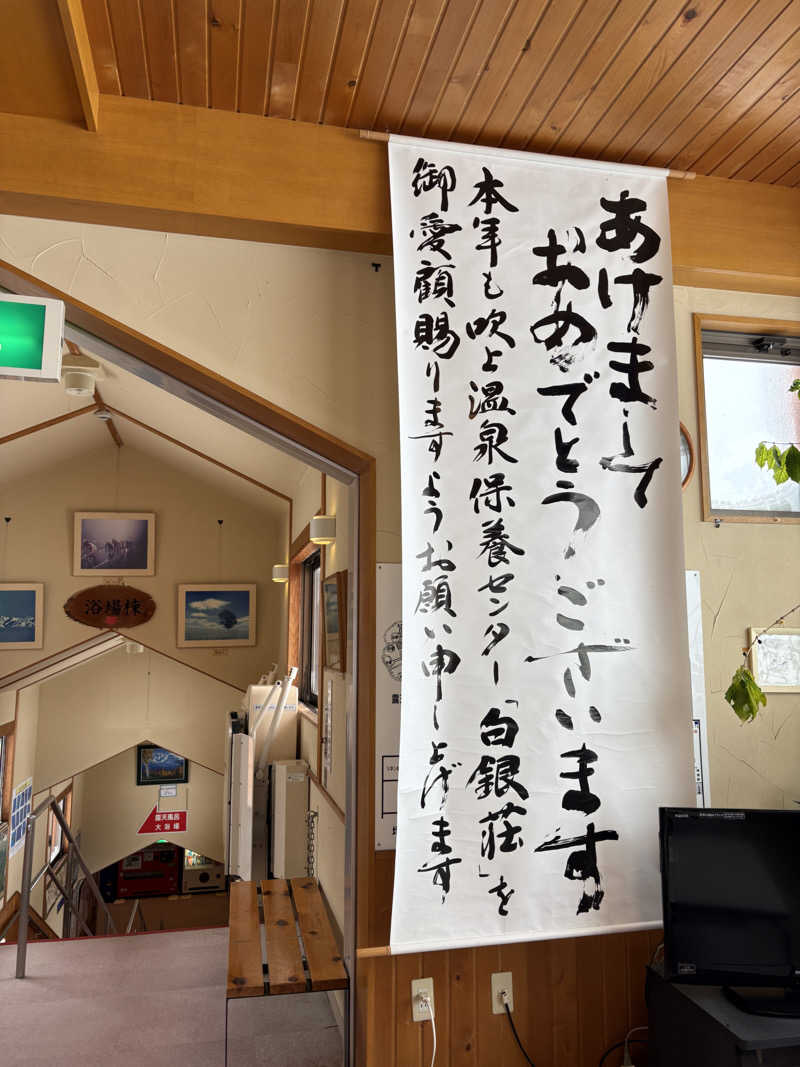 あけまして
おめでとうございます
本年も吹上温泉保養センター「白銀荘」を
御愛顧賜りますようお願い申し上げます
浴場棟
露天風呂
大浴場